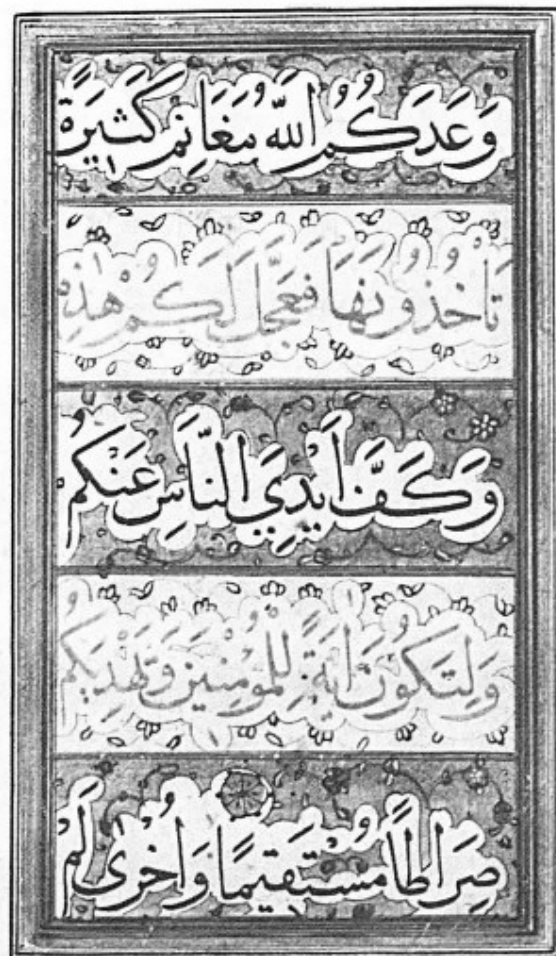 وَعَدَكُمُ اللّٰهُ مَغَانِمَ كَثِيرَةً
تَأْخُذُونَهَا فَعَجَّلَ لَكُمْ هٰذِهِ
وَكَفَّ أَيْدِيَ النَّاسِ عَنْكُمْ
وَلِتَكُونَ اٰيَةً لِلْمُؤْمِنِينَ وَيَهْدِيَكُمْ
صِرَاطًا مُسْتَقِيمًا وَاُخْرٰى لَمْ